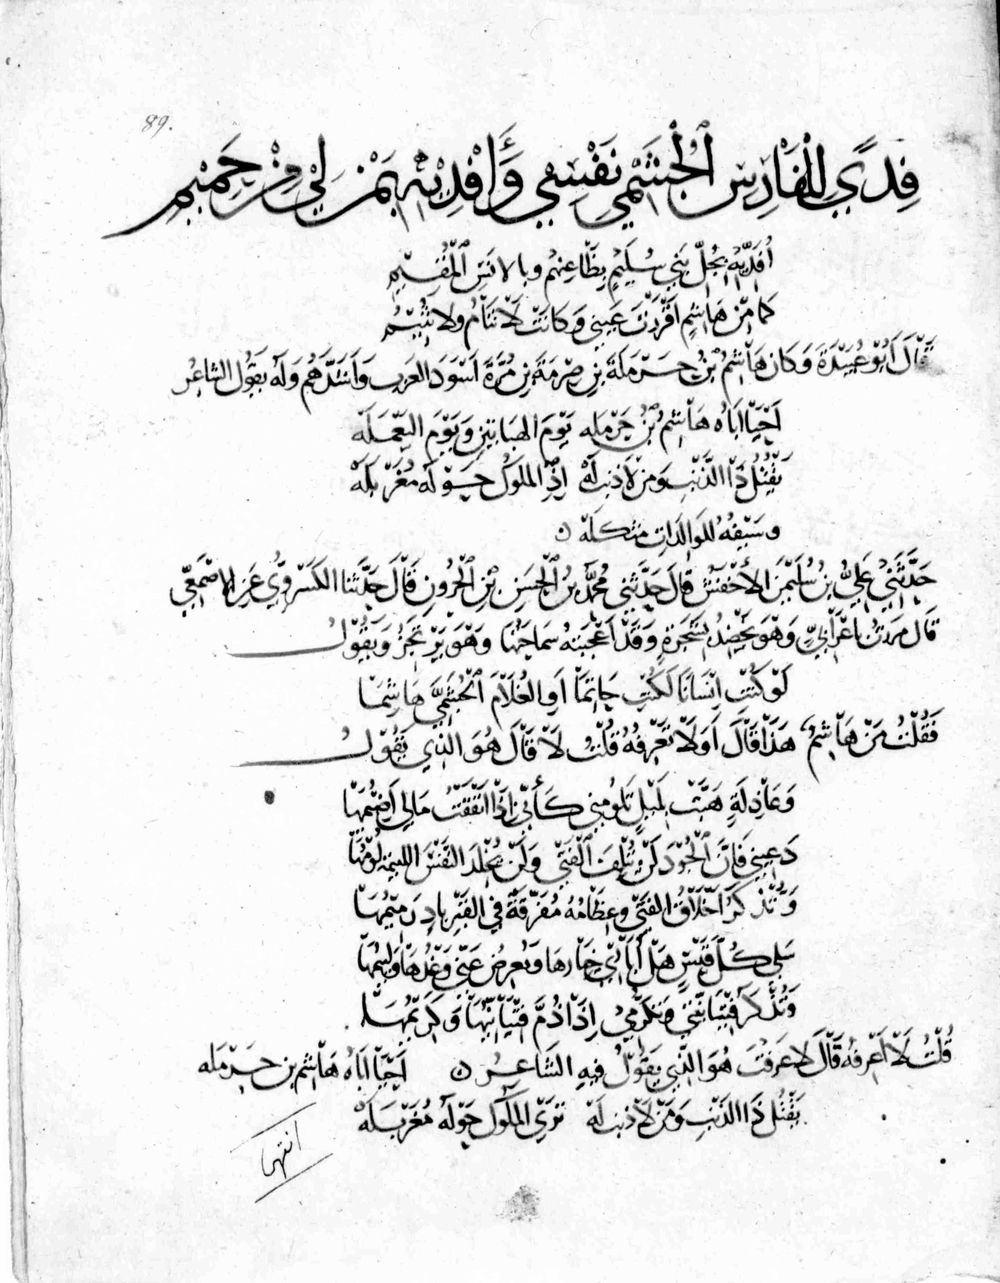 89.
فِدًى لِلْفَارِسِ ٱلْجُشَمِيِّ نَفْسِي وَأَفْدِيهِ بِمَنْ لِي مِنْ حَمِيمِ
أُفَدِّيهِ بِجُلِّ بَنِي سُلَيْمٍ بِظَاعِنِهِمْ وبالانَسِ ٱلْمُقِيمِ
كَمَا مِنْ هَاشِمٍ اقْرَرْتَ عَيْنِي وَكَانَتْ لَا تَنَامُ ولا تُنِيمُ
قَالَ أَبُو عُبَيْدَةَ وَكَان هَاشِمُ بْنُ حَرْمَلَةَ بْنِ صِرْمَةَ بن مُرَّةَ اسْوَدَ العَرَبِ وَأَشَدَّهُمْ وَلَهُ يَقُولُ الشاعر
أَحْيَا ابَاهُ هَاشِمُ بْنُ حَرْمَله يَوْمَ الهَبَاتَيْنِ وَيَوْمَ اليَعْمَلَه
يَقْتُلُ ذَا الذَّنْبِ وَمَنْ لَا ذنب لَهْ اذِ الملوك حَوْلَهُ مُغَرْبَلَهْ
وسَيْفُهُ لِلْوَالِدَاتِ مثكلَهْ ه
حَدَّثَنِي عَلِيُّ بنُ سُلَيْمٰنَ الأَخْفَشُ قَالَ حَدَّثَنِي مُحَمَّدُ بْنُ ٱلْحَسَنِ بْنِ ٱلْحَرُونِ قَالَ حَدَّثَنَا الكَسْرَوِيُّ عَنِ الاصْمَعِيِّ
قَالَ مَرَرْتُ بِاعْرَابِيٍّ وَهُوَ يَخْضِدُ شَجَرَةٍ وَقَدْ اعْجَبَتْهُ سَمَاحَتُهَا وَهُوَ يَرْتَجِزُ وَيَقُولُ
لَوْ كُنْتِ انْسَانًا لَكُنْتِ حَاتِمَا أَوِ الغُلَامَ ٱلْجُشَمِيَّ هَاشِمَا
فَقُلْتُ مَنْ هَاشِمُ هَذَا قَالَ أَوَلَا تَعْرِفُهُ قُلْتُ لَا قَالَ هُوَ الذي يَقُولُ
وَعَاذِلَةٍ هَبَّتْ بِلَيْلٍ تَلُومُنِي كَأَنِّي إِذَا انْفَقْتُ مَالِي أَضِيمُهَا
دَعِينِي فَإِنَّ ٱلْجُودَ لَنْ يُتْلِفَ ٱلْفَتَى وَلَنْ يُخْلِدَ النَّفْسَ اللئيمة لُومُهَا
وَتُذْكَرُ أَخْلَاقُ الفَتَى وعِظَامُهُ مُفَرَّقَةٌ في القَبْرِ بادٍ رَمِيمُهَا
سَلِي كُلَّ قَيْسٍ هَلْ أُبَارِي خِيَارهَا وَيُعْرِضُ عَنِّي وَغْدُهَا وَلَئِيمُهَا
وَتُذْكَرُ فِتْيَانِيَّتِي وَتَكَرُّمِي إِذَا ذُمَّ فِتْيَانِيُّهَا وَكَرِيمُهَا
قُلْتُ لَا أَعْرِفُهُ قَالَ لَا عَرَفْتَ هُوَ الذي يَقُولُ فِيهِ الشَّاعِرُ ه أَحْيَا ابَاهُ هَاشِم بن حَرْمَله
يَقْتُلُ ذَا الذَّنْبِ وَمَنْ لَا ذنب لَهْ تَرَى المُلُوكَ حَوْلَهُ مُغَرْبَلَهْ